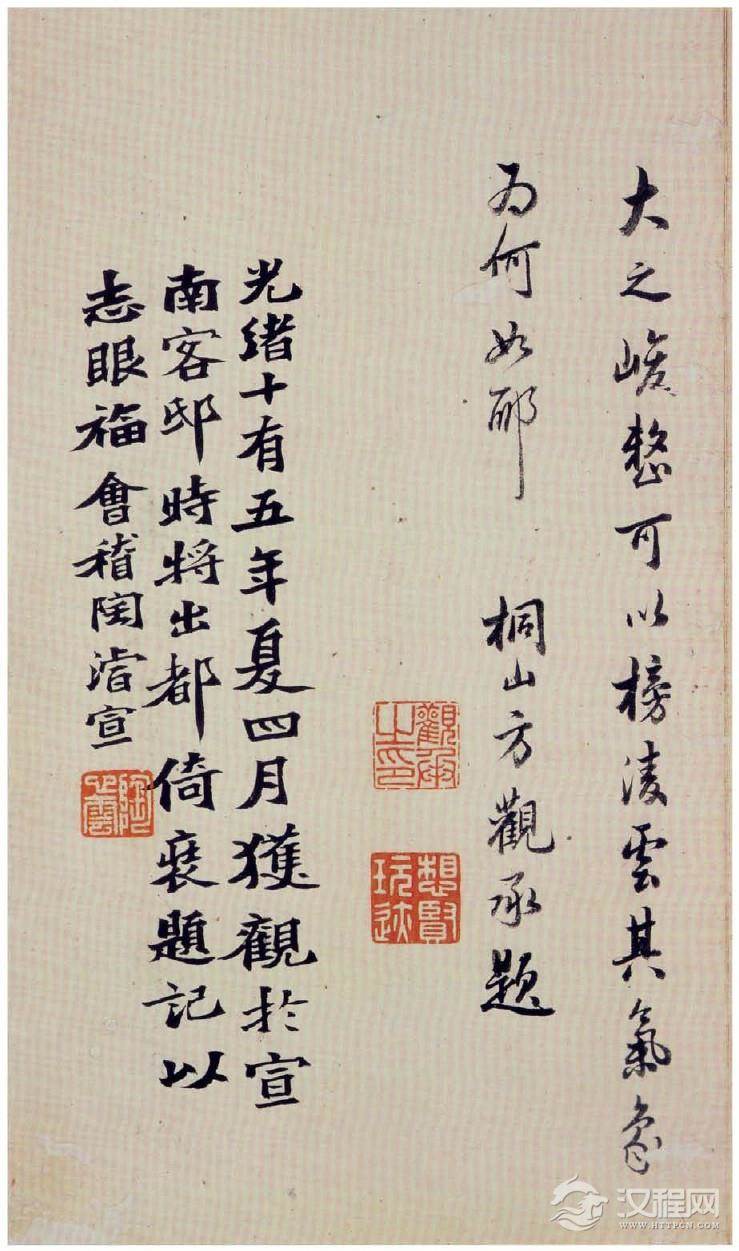 大之峻整可以榜凌雲其氣象
为何如耶　桐山方觀承題
觀承之印
想賢玩迹
光緒十有五年夏四月獲觀於宣
南客邸時將出都倚裝題記以
志眼福會稽陶濬宣
陶心雲
汉程网
WWW.HTTPCN.COM